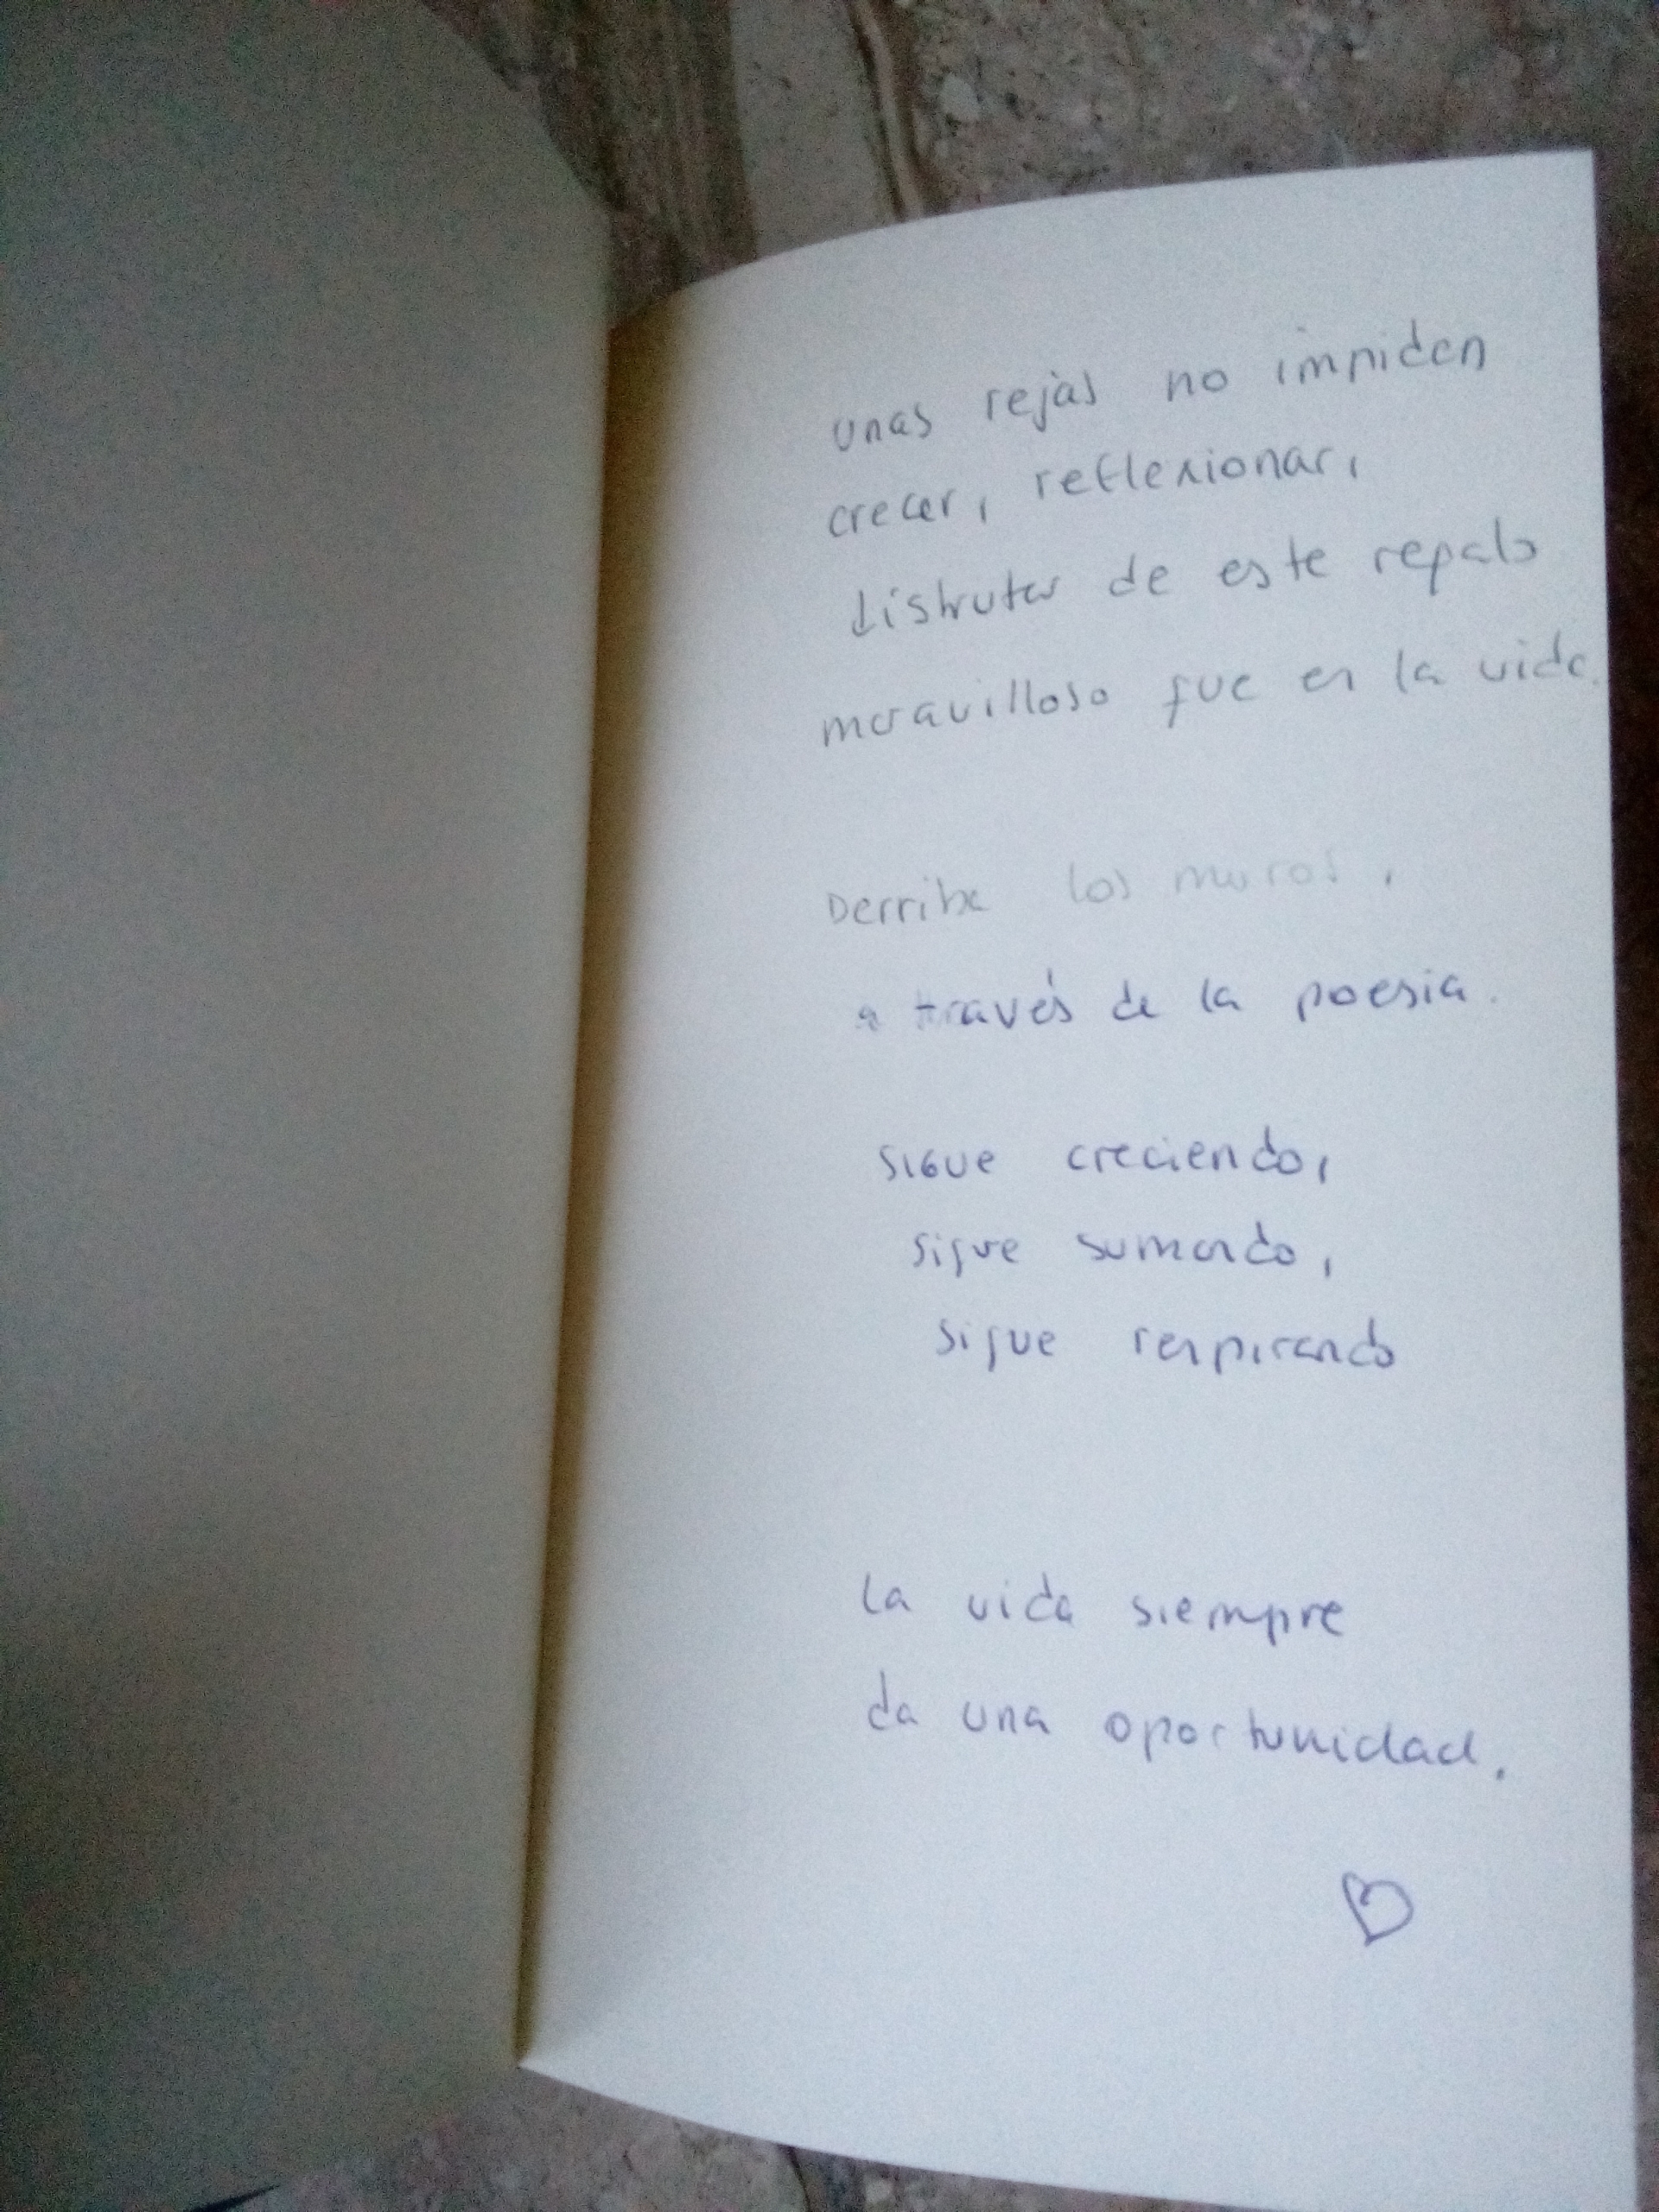 unas rejas no impiden
crecer, reflexionar,
disfrutar de este regalo
maravilloso que es la vida.
Derriba los muros,
a través de la poesia.
sigue creciendo,
sigue sumando,
sigue respirando
la vida siempre
da una oportunidad.